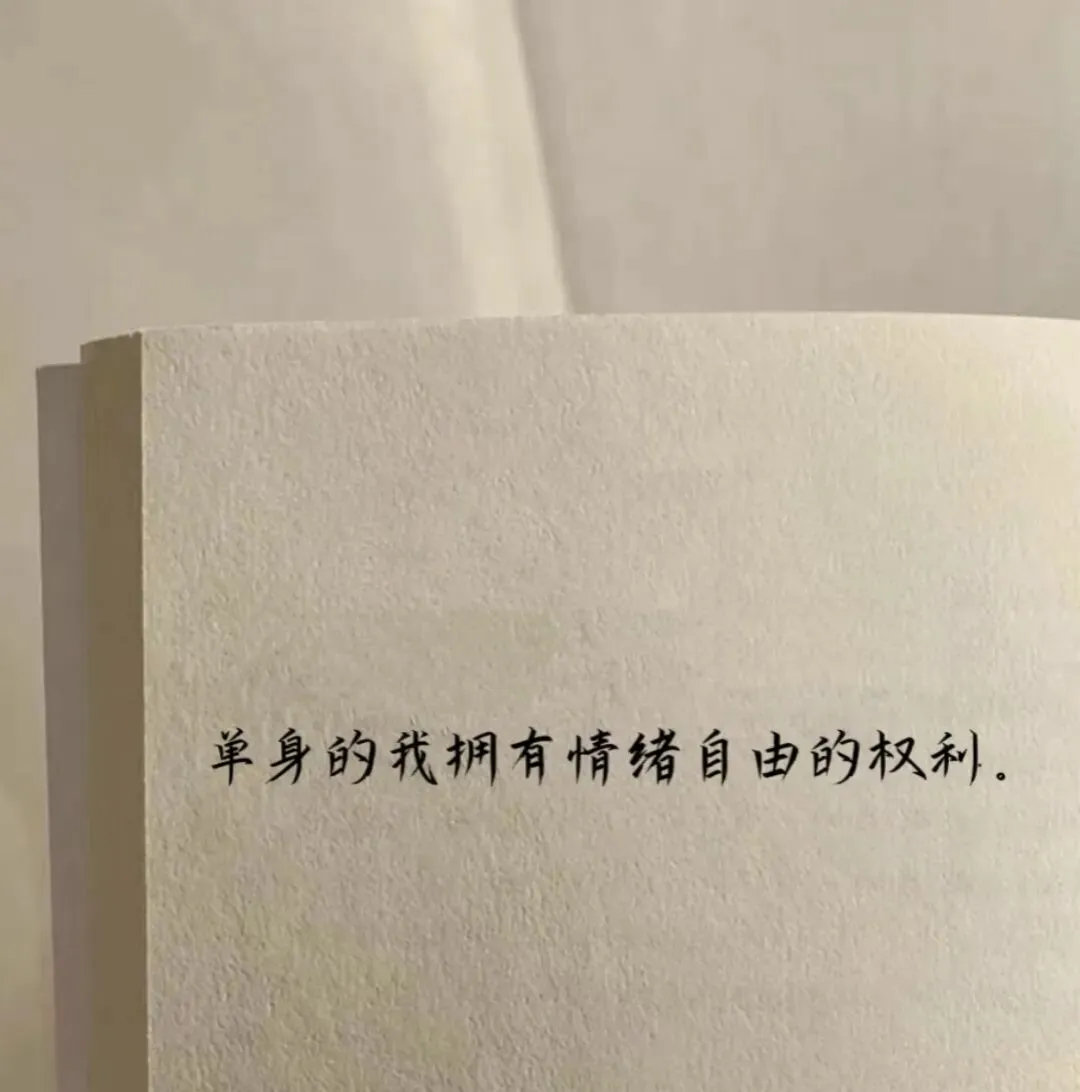 单身的我拥有情绪自由的权利。